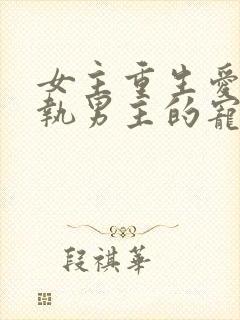 女主重生愛
執男主的寵
段祺華